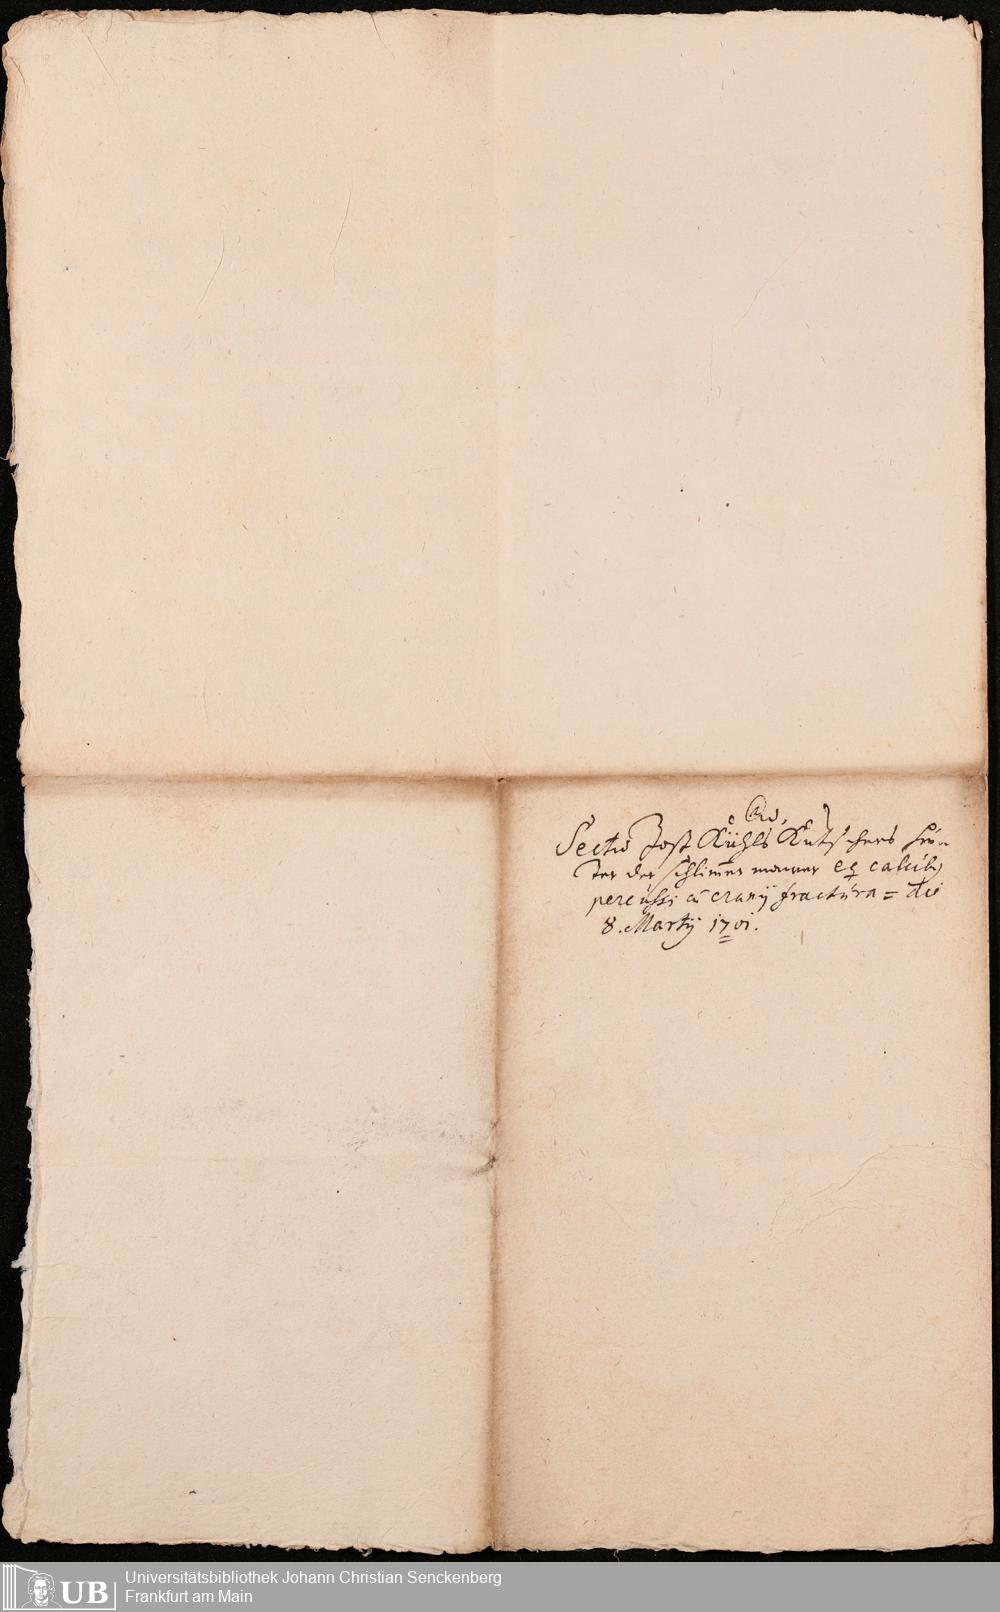 Sectio Jost Kühls Kutschers hin-
ter der schlimmen mauer eq calcib9
percussi cū cranij fractura = die
8. Martij 1701.
UB
Universitätsbibliothek Johann Christian Senckenberg
Frankfurt am Main